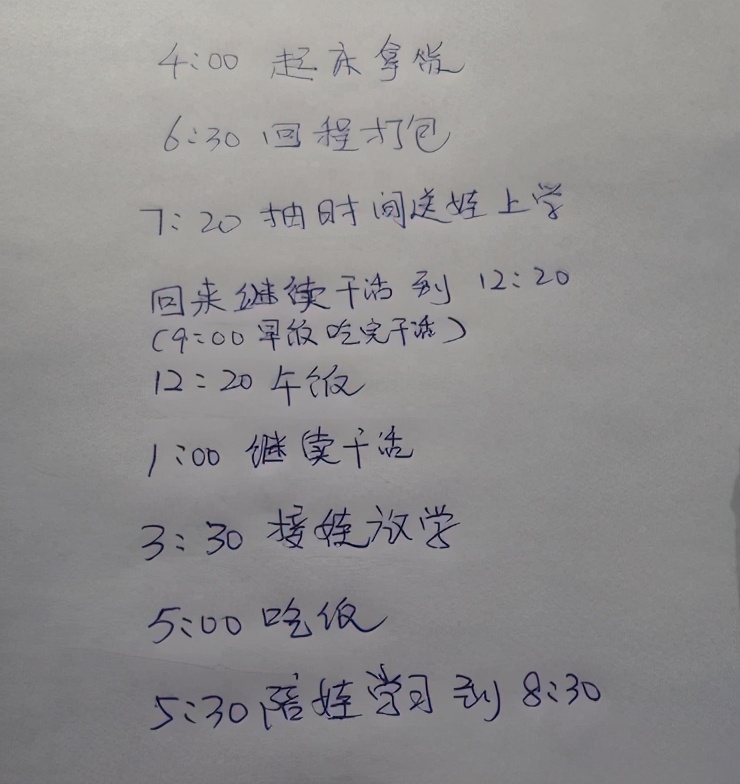 4:00 起床拿货
6:30 回程打包
7:20 抽时间送娃上学
回来继续干活到 12:20
(9:00 早饭吃完干活)
12:20 午饭
1:00 继续干活
3:30 接娃放学
5:00 吃饭
5:30 陪娃学习到 8:30